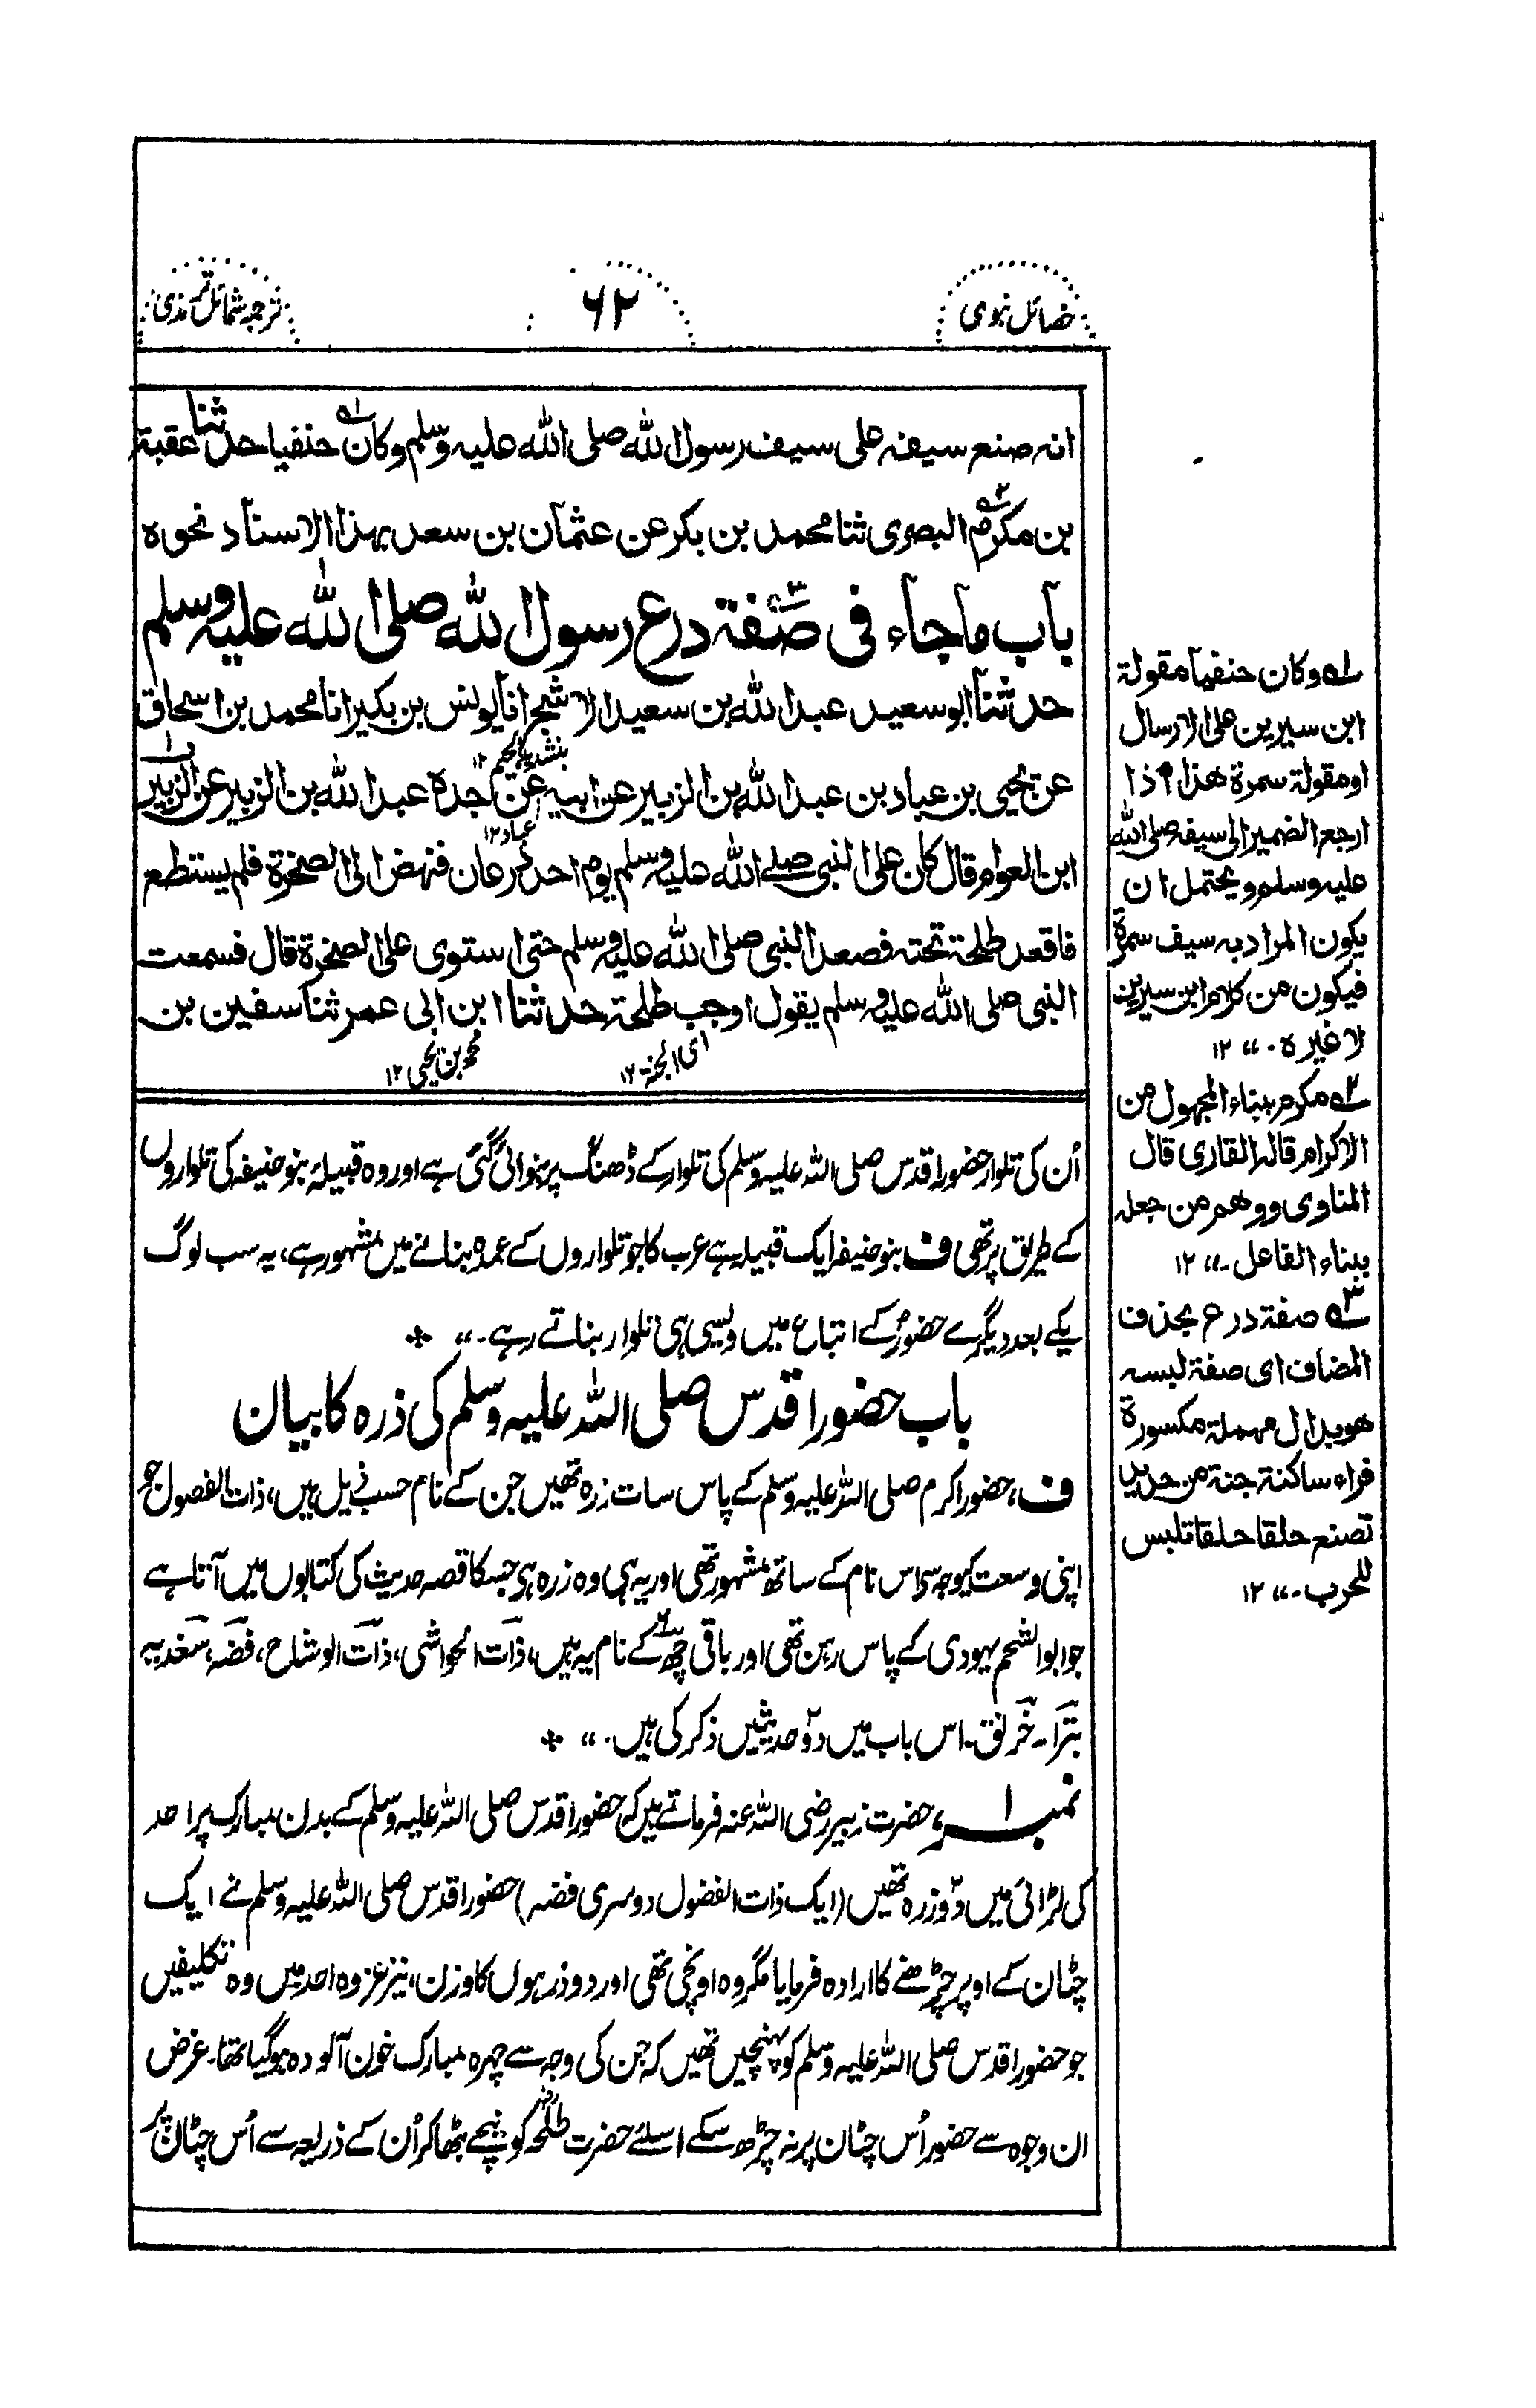 خصائل نبوی
۶۲
ترجمہ شمائل ترمذی
انہ صنع سیفہ علی سیف رسول اللہ صلی اللہ علیہ وسلم وکان حنفیا حدثنا عقبة
بن مکرم البصری ثنا محمد بن بکر عن عثمان بن سعد بھذا الاسناد نحوہ
باب ماجاء فی صفة درع رسول اللہ صلی اللہ علیہ وسلم
حدثنا ابو سعید عبد اللہ بن سعید الاشج انا یونس بن بکیر انا محمد بن اسحاق
بتشدید الجیم ۱۲
عن یحیی بن عباد بن عبد اللہ بن الزبیر عن ابیہ عن جدہ عبد اللہ بن الزبیر عن الزبیر
عباد ۱۲
ابن العوام قال کان علی النبی صلے اللہ علیہ وسلم یوم احد درعان فنھض الی الصخرة فلم یستطع
فاقعد طلحة تحتہ فصعد النبی صلی اللہ علیہ وسلم حتی استوی علی الصخرة قال فسمعت
النبی صلی اللہ علیہ وسلم یقول اوجب طلحة حدثنا ابن ابی عمر ثنا سفین بن
ای الجنة ۱۲
محمد بن یحیی ۱۲
اُن کی تلوار حضور اقدس صلی اللہ علیہ وسلم کی تلوار کے ڈھنگ پر بنوائی گئی ہے اور وہ قبیلۂ بنو حنیفہ کی تلواروں
کے طریق پر تھی ف بنو حنیفہ ایک قبیلہ ہے عرب کا جو تلواروں کے عمدہ بنانے میں مشہور ہے، یہ سب لوگ
یکے بعد دیگرے حضورؐ کے اتباع میں ویسی ہی تلوار بناتے رہے۔ ،،
باب حضور اقدس صلی اللہ علیہ وسلم کی ذرہ کا بیان
ف، حضور اکرم صلی اللہ علیہ وسلم کے پاس سات زرہ تھیں جن کے نام حسب ذیل ہیں، ذات الفصول جو
اپنی وسعت کیوجہ سے اس نام کے ساتھ مشہور تھی اور یہ ہی وہ زرہ ہی جسکا قصہ حدیث کی کتابوں میں آتا ہے
جو ابو الشحم یہودی کے پاس رہن تھی اور باقی چھ کے نام یہ ہیں، ذات الحواشی، ذات الوشاح، فضہ، سغدیہ
بترا۔ خرنق۔ اس باب میں دو حدیثیں ذکر کی ہیں۔ ،،
نمبر ۱، حضرت زبیر رضی اللہ عنہ فرماتے ہیں کہ حضور اقدس صلی اللہ علیہ وسلم کے بدن مبارک پر احد
کی لڑائی میں دو زرہ تھیں (ایک ذات الفضول دوسری فضہ) حضور اقدس صلی اللہ علیہ وسلم نے ایک
چٹان کے اوپر چڑھنے کا ارادہ فرمایا مگر وہ اونچی تھی اور دو ذرہوں کا وزن، نیز غزوہ احد میں وہ تکلیفیں
جو حضور اقدس صلی اللہ علیہ وسلم کو پہنچیں تھیں کہ جن کی وجہ سے چہرہ مبارک خون آلودہ ہو گیا تھا۔ غرض
ان وجوہ سے حضور اُس چٹان پر نہ چڑھ سکے اسلئے حضرت طلحہؓ کو نیچے بٹھا کر اُن کے ذریعہ سے اُس چٹان پر
۱؎ وکان حنفیا مقولة
ابن سیرین علی الارسال
او مقولة سمرة ھذا اذا
ارجع الضمیر الی سیفہ صلی اللہ
علیہ وسلم و یحتمل ان
یکون المراد بہ سیف سمرة
فیکون من کلام ابن سیرین
لا غیرہ۔ ،، ۱۲
۲؎ مکرم ببناء المجھول من
الاکرام قالہ القاری قال
المناوی ووھم من جعلہ
ببناء الفاعل۔ ،، ۱۲
۳؎ صفة درع بحذف
المضاف ای صفة لبسہ
ھو بدال مھملة مکسورة
فراء ساکنة جنة من حدید
تصنع حلقا حلقا تلبس
للحرب۔ ،، ۱۲